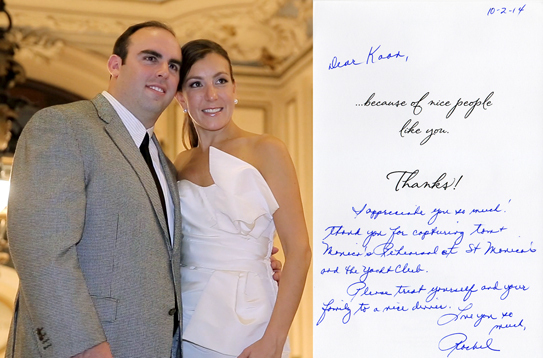 10-2-14
Dear Koon,
...because of nice people
like you.
Thanks!
I appreciate you so much!
Thank you for capturing Tom &
Monica's Rehearsal at St Monica's
and the Yacht Club.
Please treat yourself and your
family to a nice dinner.
Love you so
much,
Rachel